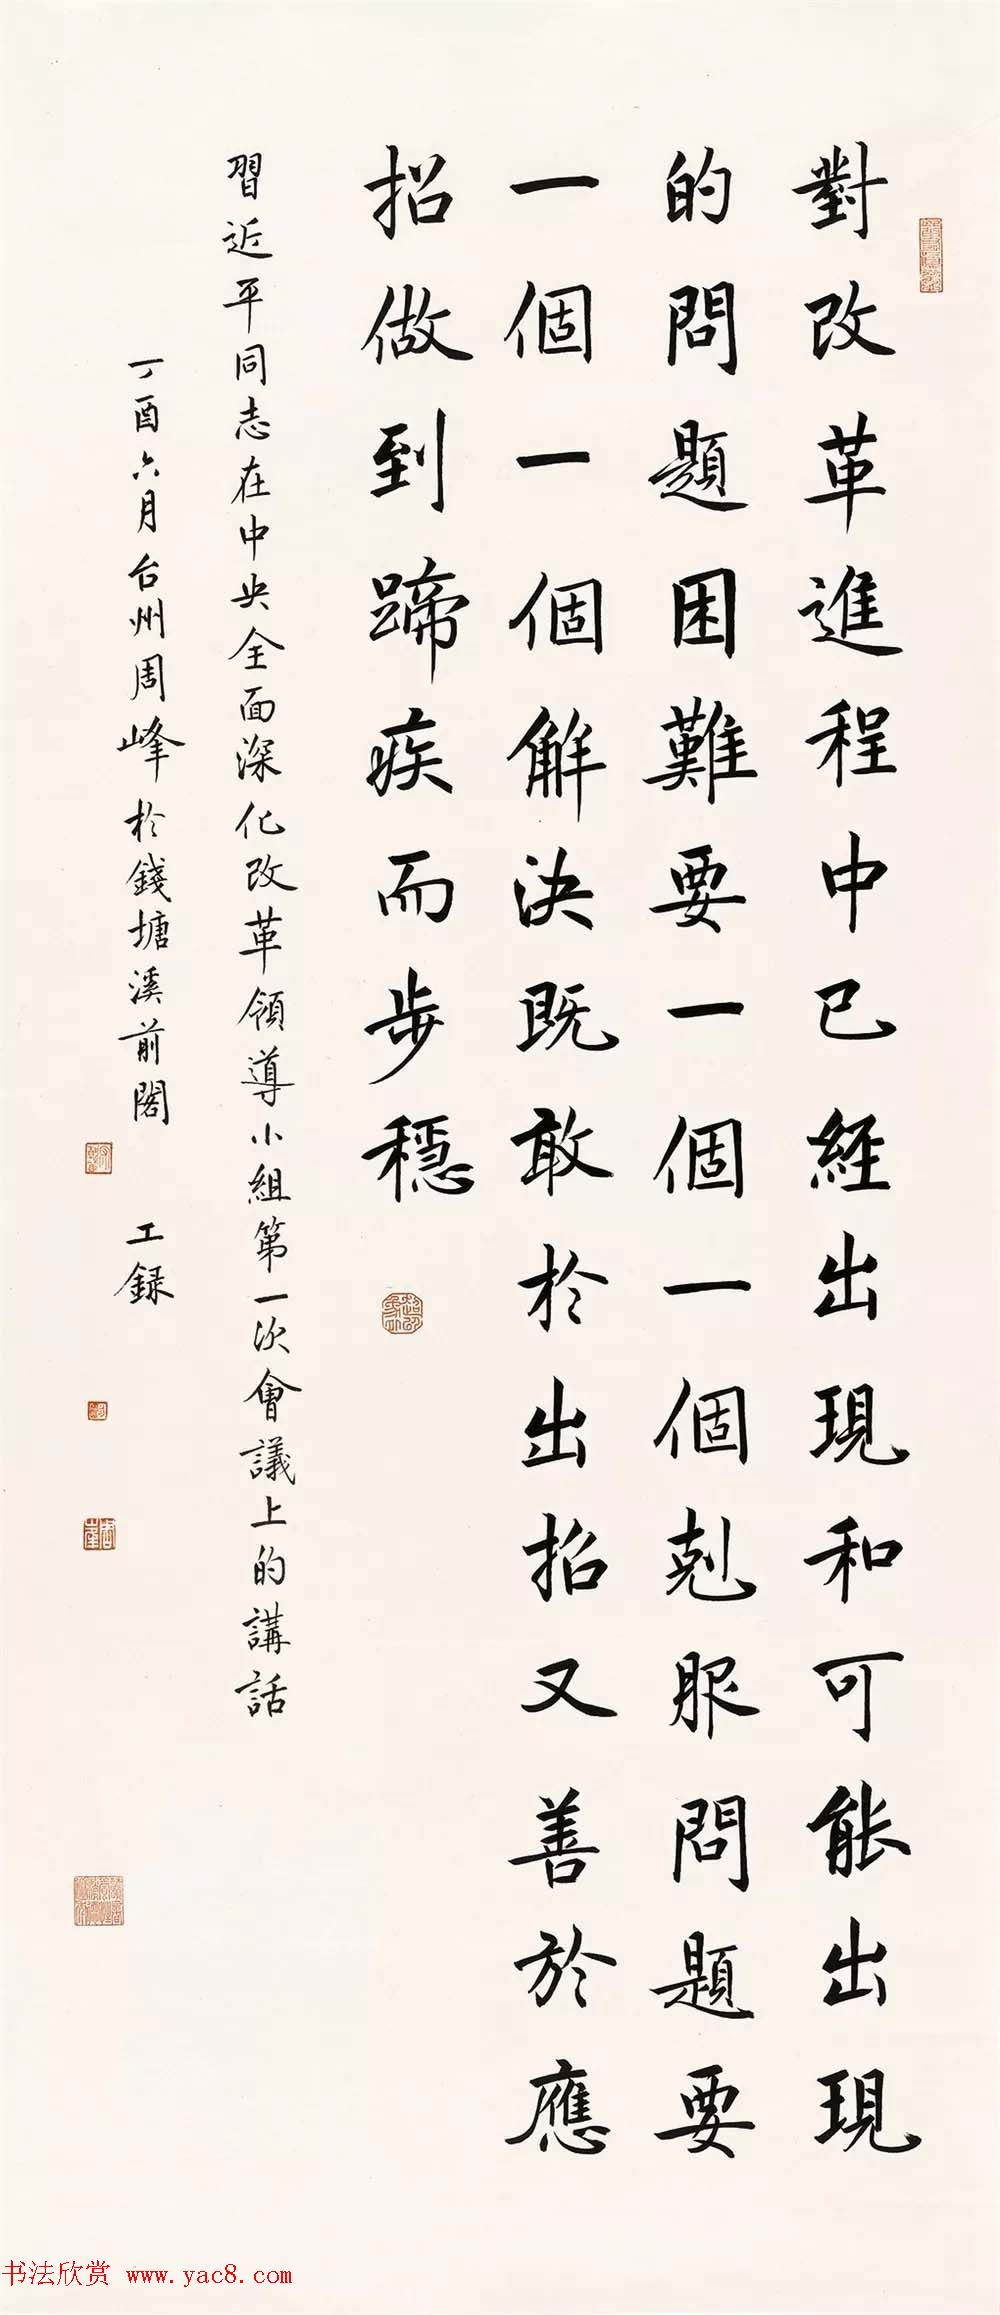 對改革進程中已經出現和可能出現
的問題困難要一個一個剋服問題要
一個一個解決既敢於出招又善於應
招做到蹄疾而步穩
習近平同志在中央全面深化改革領導小組第一次會議上的講話
丁酉六月台州周峰於錢塘溪前閣
工録
书法欣赏 www.yac8.com